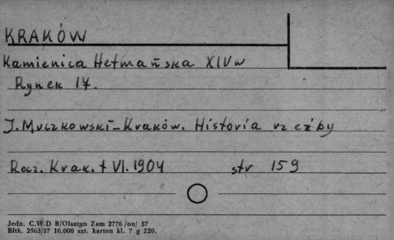 KRAKÓW
Kamienica Hetmańska XIV w
Rynek 17.
J. Muczkowski-Kraków. Historia rzeźby
Rocz. Krak. t VI. 1904 str 159
Jedn. C.W.D B/Olsztyn Zam 2776 /on/ 57
Bltk. 2563/57 10.000 szt. karton kl. 7 g 220.